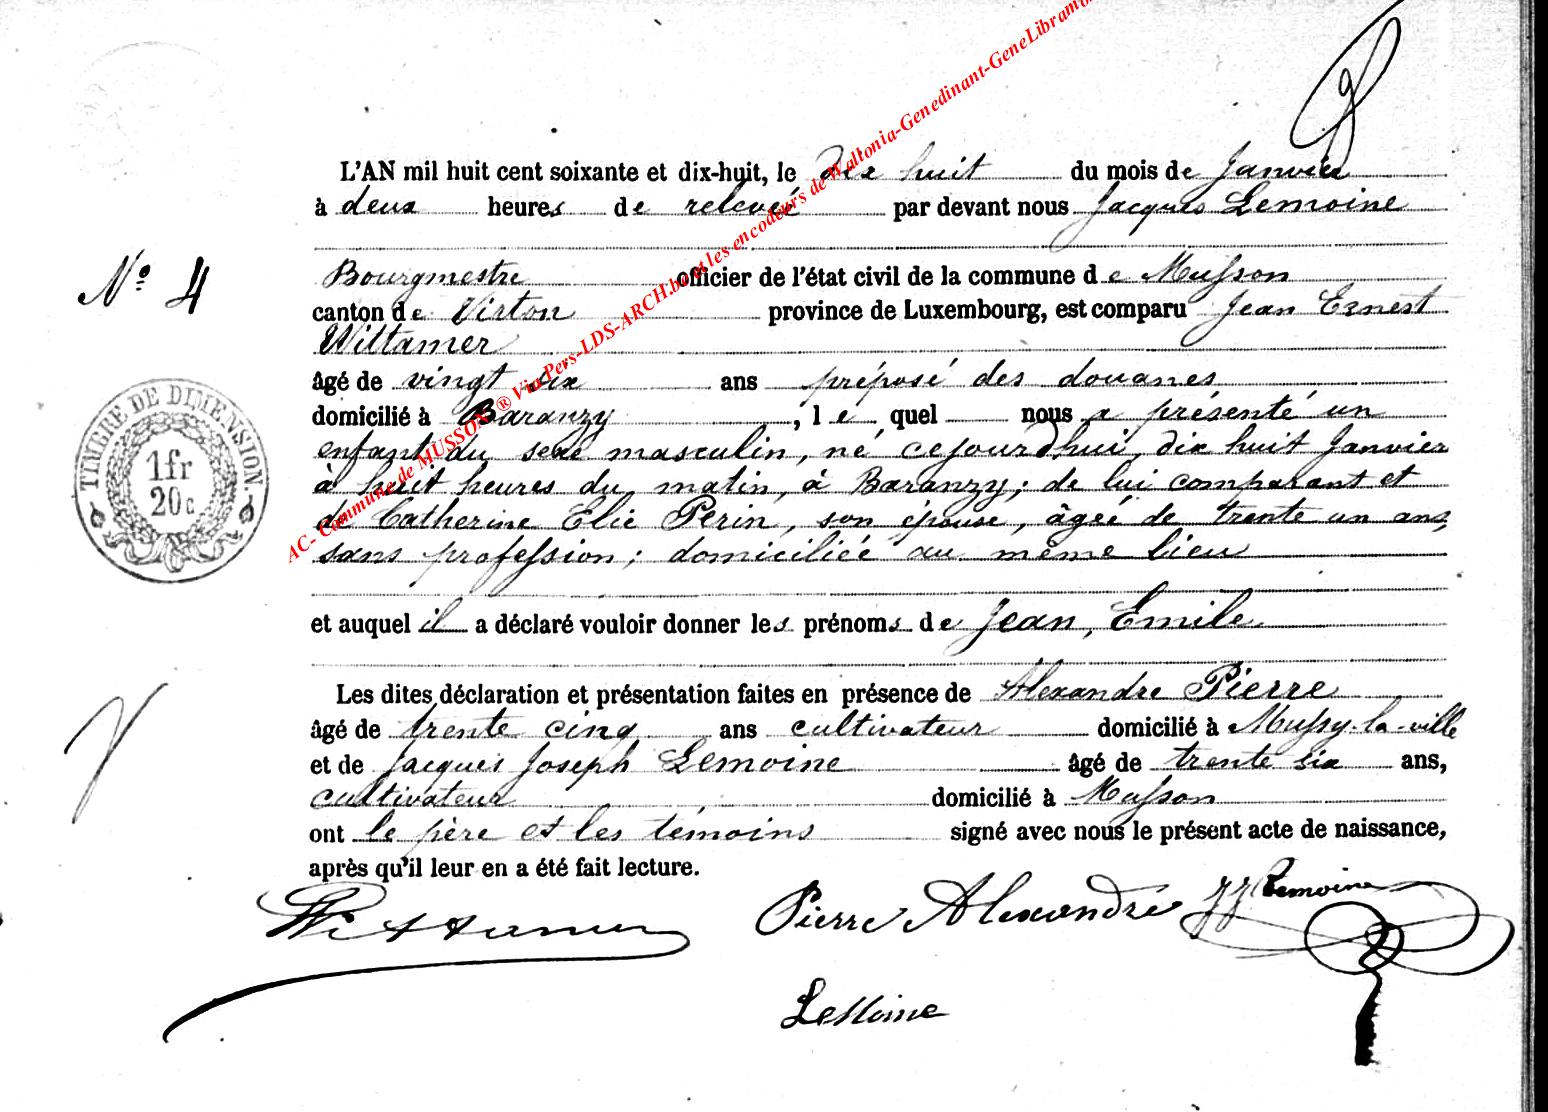 L'AN mil huit cent soixante et dix-huit, le dix huit du mois de Janvier
à deux heures de relevée par devant nous Jacques Lemoine
Bourgmestre officier de l'état civil de la commune de Musson
N° 4
canton de Virton province de Luxembourg, est comparu Jean Ernest
Wittamer
âgé de vingt six ans préposé des douanes
domicilié à Baranzy, le quel nous a présenté un
enfant du sexe masculin, né cejourd'hui, dix huit Janvier
à huit heures du matin, à Baranzy; de lui comparant et
de Catherine Elie Perin, son épouse, âgée de trente un ans,
sans profession; domiciliée au même lieu
TIMBRE DE DIMENSION
1fr
20c
et auquel il a déclaré vouloir donner les prénoms de Jean, Emile.
Les dites déclaration et présentation faites en présence de Alexandre Pierre
âgé de trente cinq ans cultivateur domicilié à Mussy-la-ville
et de Jacques Joseph Lemoine âgé de trente six ans,
cultivateur domicilié à Musson
ont le père et les témoins signé avec nous le présent acte de naissance,
après qu'il leur en a été fait lecture.
Wittamer Pierre Alexandre JJ Lemoine
Lemoine
AC- Commune de MUSSON ® Via Pers-LDS-ARCH.be et les encodeurs de Waltonia-Genedinant-GeneLibramont